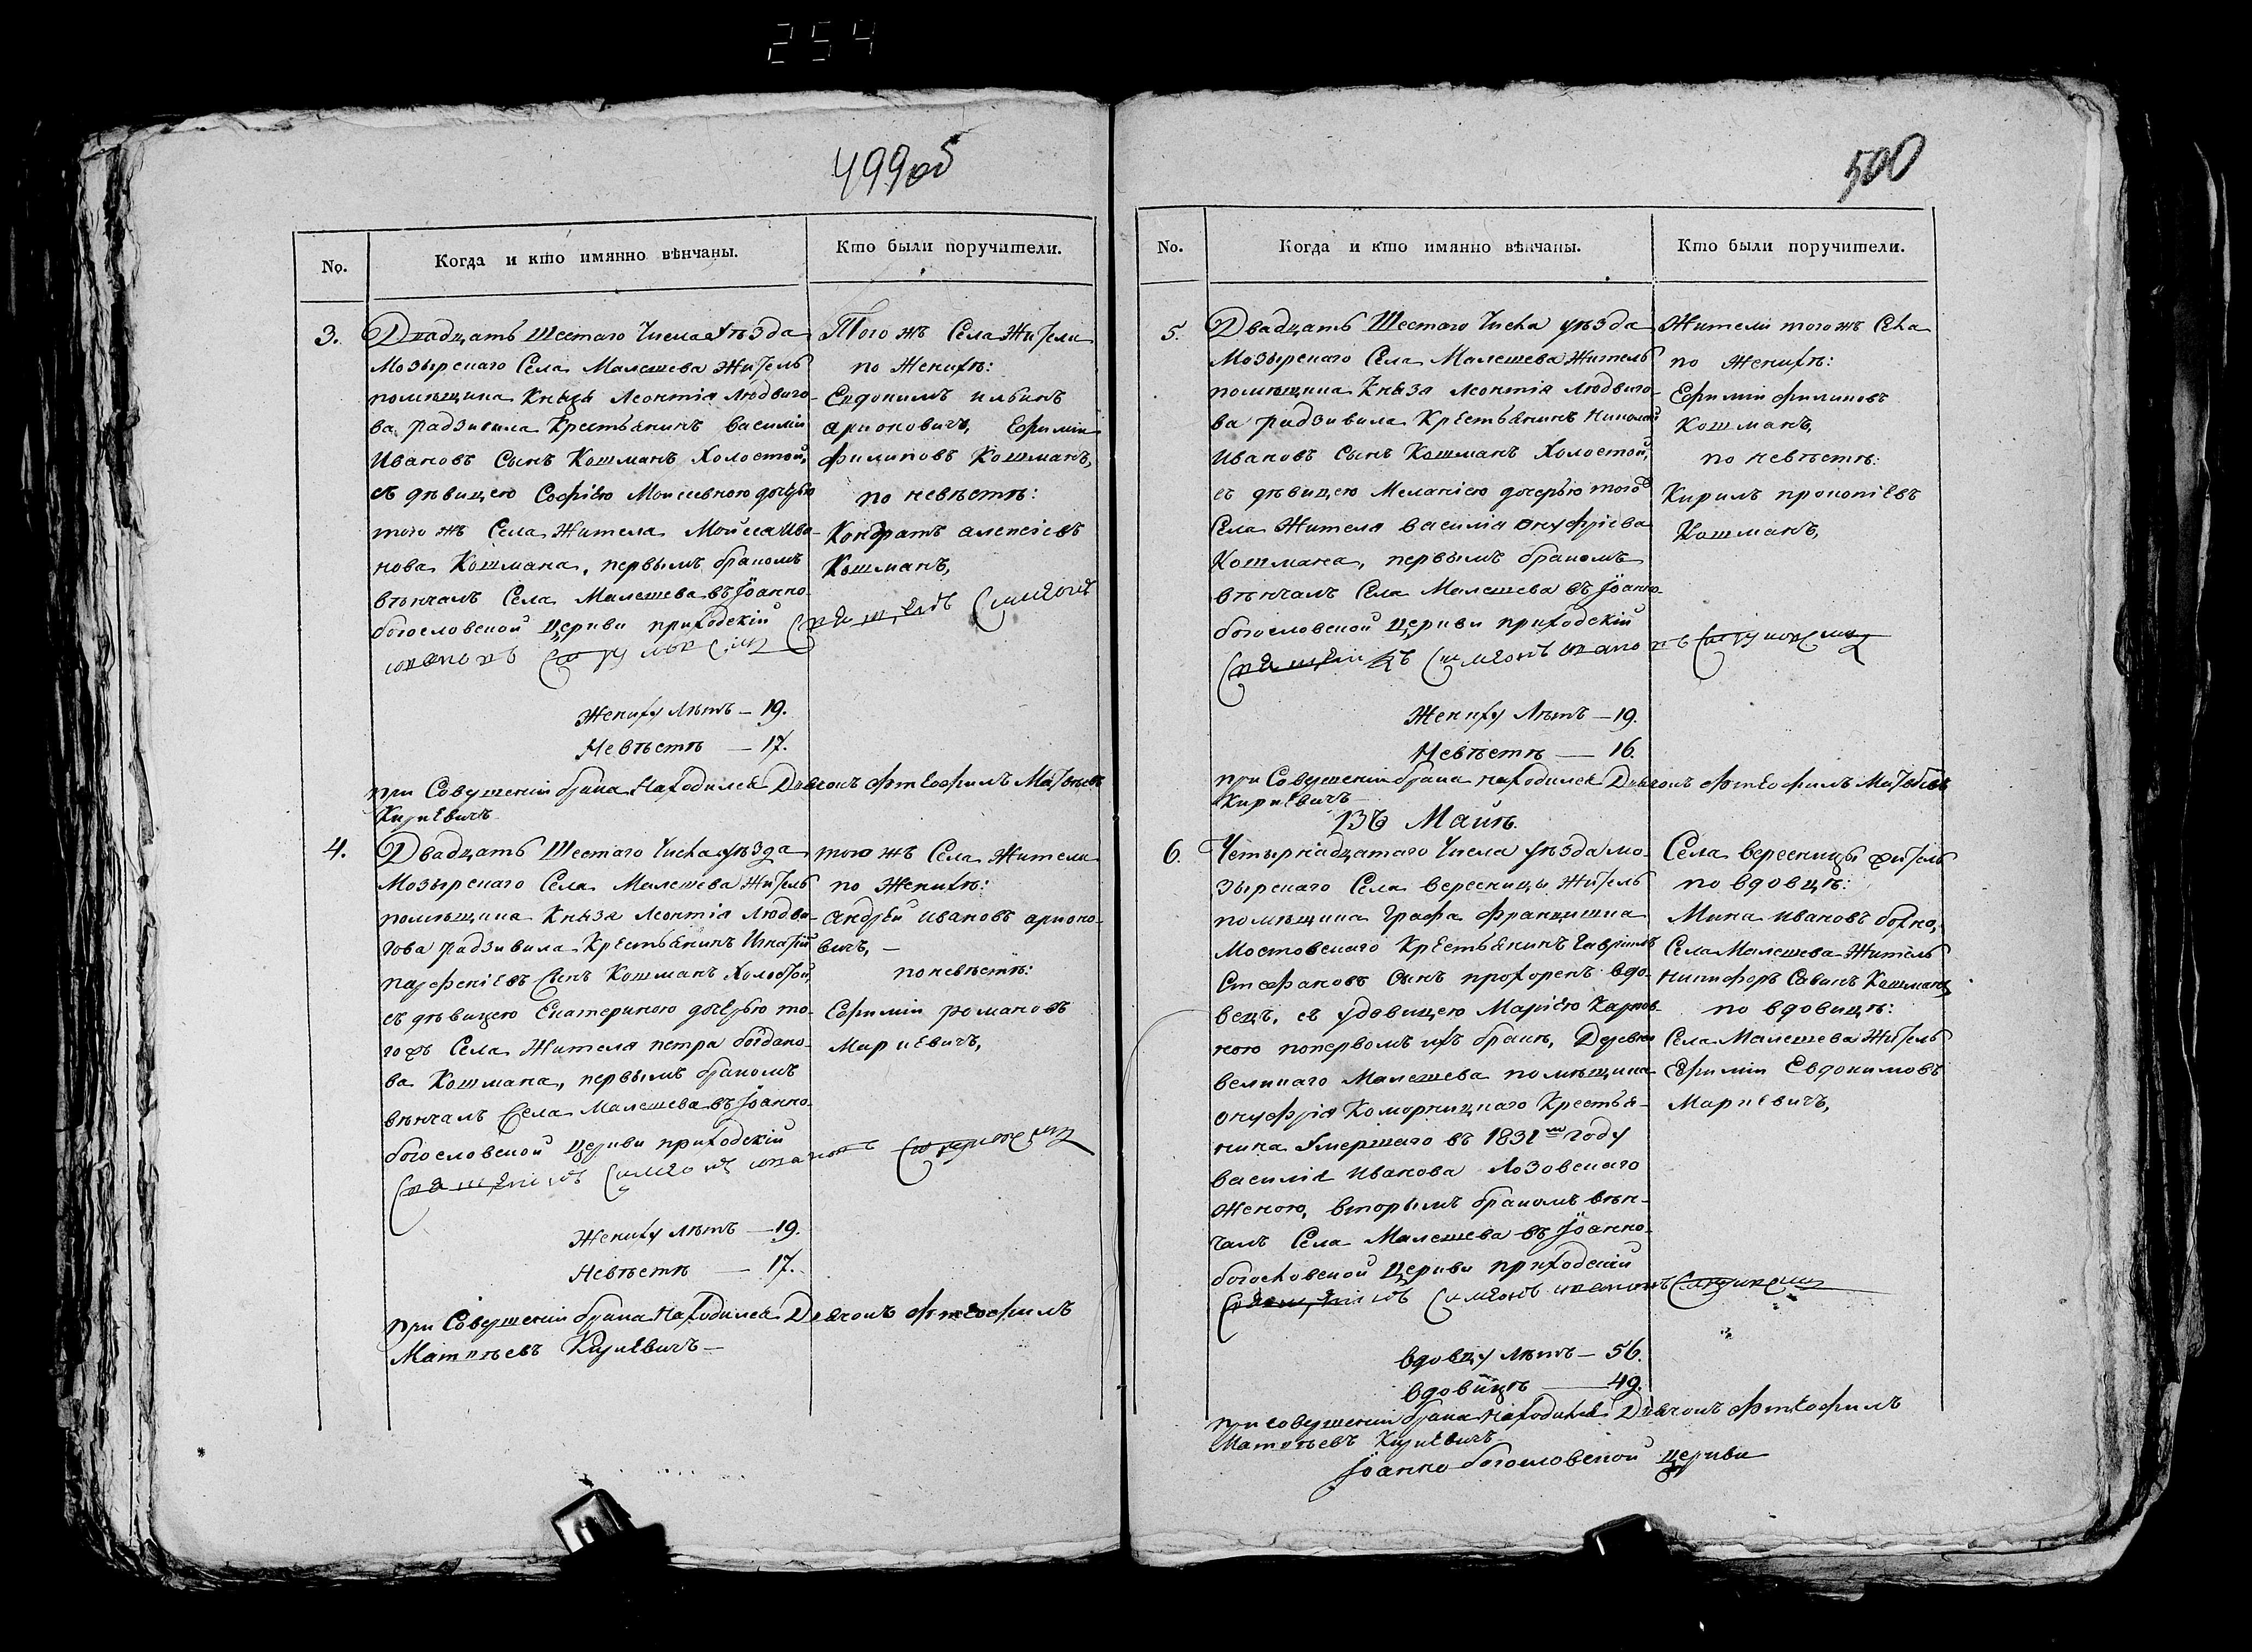 254
499об
No.
Когда и кто имянно вѣнчаны.
Кто были поручители.
3.
Двадцать Шестаго Числа уѣзда
Мозырскаго Села Малешева Житель
помѣщика Князя Леонтія Людвиго-
ва Радзивила Крестьянинъ Василій
Ивановъ Сынъ Кошманъ Холостой,
съ дѣвицею Софіею Моисеевною дочерью
того жъ Села Жителя Мойсея Ива-
нова Кошмана, первымъ бракомъ
вѣнчалъ Села Малешева въ Іоанно-
богословской Церкви приходскій
Священникъ Симеонъ
Того жъ Села Жители
по Женихѣ:
Евдокимъ Ильинъ
Арионовичъ, Ефимій
Филиповъ Кошманъ,
по невѣстѣ:
Кондратъ Алексіевъ
Кошманъ,
Жениху Лѣтъ — 19.
Невѣстѣ — 17.
при Совершеніи брака Находился Дьячокъ Фтеофилъ Матвѣевъ
Кириевичъ
4.
Двадцать Шестаго Числа уѣзда
Мозырскаго Села Малешева Житель
помѣщика Князя Леонтія Людви-
гова Радзивила Крестьянинъ Игнатій
Парфеніевъ Сынъ Кошманъ Холостой,
съ дѣвицею Екатериною дочерью то-
го жъ Села Жителя Петра Богдано-
ва Кошмана, первымъ бракомъ
вѣнчалъ Села Малешева въ Іоанно-
богословской Церкви приходскій
Священникъ Симеонъ
того жъ Села Жители
по Женихѣ:
Андрей Ивановъ Арионо-
вичъ, —
по невѣстѣ:
Ефимій Романовъ
Мариевичъ,
Жениху Лѣтъ — 19.
Невѣстѣ — 17.
при Совершеніи брака Находился Дьячокъ Фтеофилъ
Матвѣевъ Кириевичъ —
500
No.
Когда и кто имянно вѣнчаны.
Кто были поручители.
5.
Двадцать Шестаго Числа уѣзда
Мозырскаго Села Малешева Житель
помѣщика Князя Леонтія Людвиго-
ва Радзивила Крестьянинъ Николай
Ивановъ Сынъ Кошманъ Холостой,
съ дѣвицею Меланіею дочерью того
Села Жителя Василія Онуфріева
Кошмана, первымъ бракомъ
вѣнчалъ Села Малешева въ Іоанно-
богословской Церкви приходскій
Священникъ Симеонъ
Жители того жъ Села
по Женихѣ:
Ефимій Филиповъ
Кошманъ,
по невѣстѣ:
Кирилъ Прокопіевъ
Кошманъ,
Жениху Лѣтъ — 19.
Невѣстѣ — 16.
при Совершеніи брака находился Дьячокъ Фтеофилъ Матвѣевъ
Кириевичъ
Въ Маiѣ.
6.
Четырнадцатаго Числа уѣзда Мо-
зырскаго Села Вересницы Житель
помѣщика Графа Францишка
Мостовскаго Крестьянинъ Гавріилъ
Стефановъ Сынъ Прохоренъ вдо-
вецъ, съ удовицею Маріею Карпов-
ною по первомъ ихъ бракѣ, Деревни
Великаго Малешева помѣщика
Онуфрія Коморницкаго Крестья-
нина Умершаго въ 1831мъ году
Василія Иванова Лозовскаго
Женою, вторымъ бракомъ вѣн-
чалъ Села Малешева въ Іоанно-
богословской Церкви приходскій
Священникъ Симеонъ
Села Вересницы Житель
по вдовцѣ:
Мина Ивановъ Бохно,
Села Малешева Житель
Никифоръ Савинъ Кошманъ
по вдовицѣ:
Села Малешева Житель
Ефимій Евдокимовъ
Мариевичъ,
Вдовцу Лѣтъ — 56.
Вдовицѣ — 49.
при совершеніи брака находился Дьячокъ Фтеофилъ
Матвѣевъ Кириевичъ
Іоанно богословской Церкви